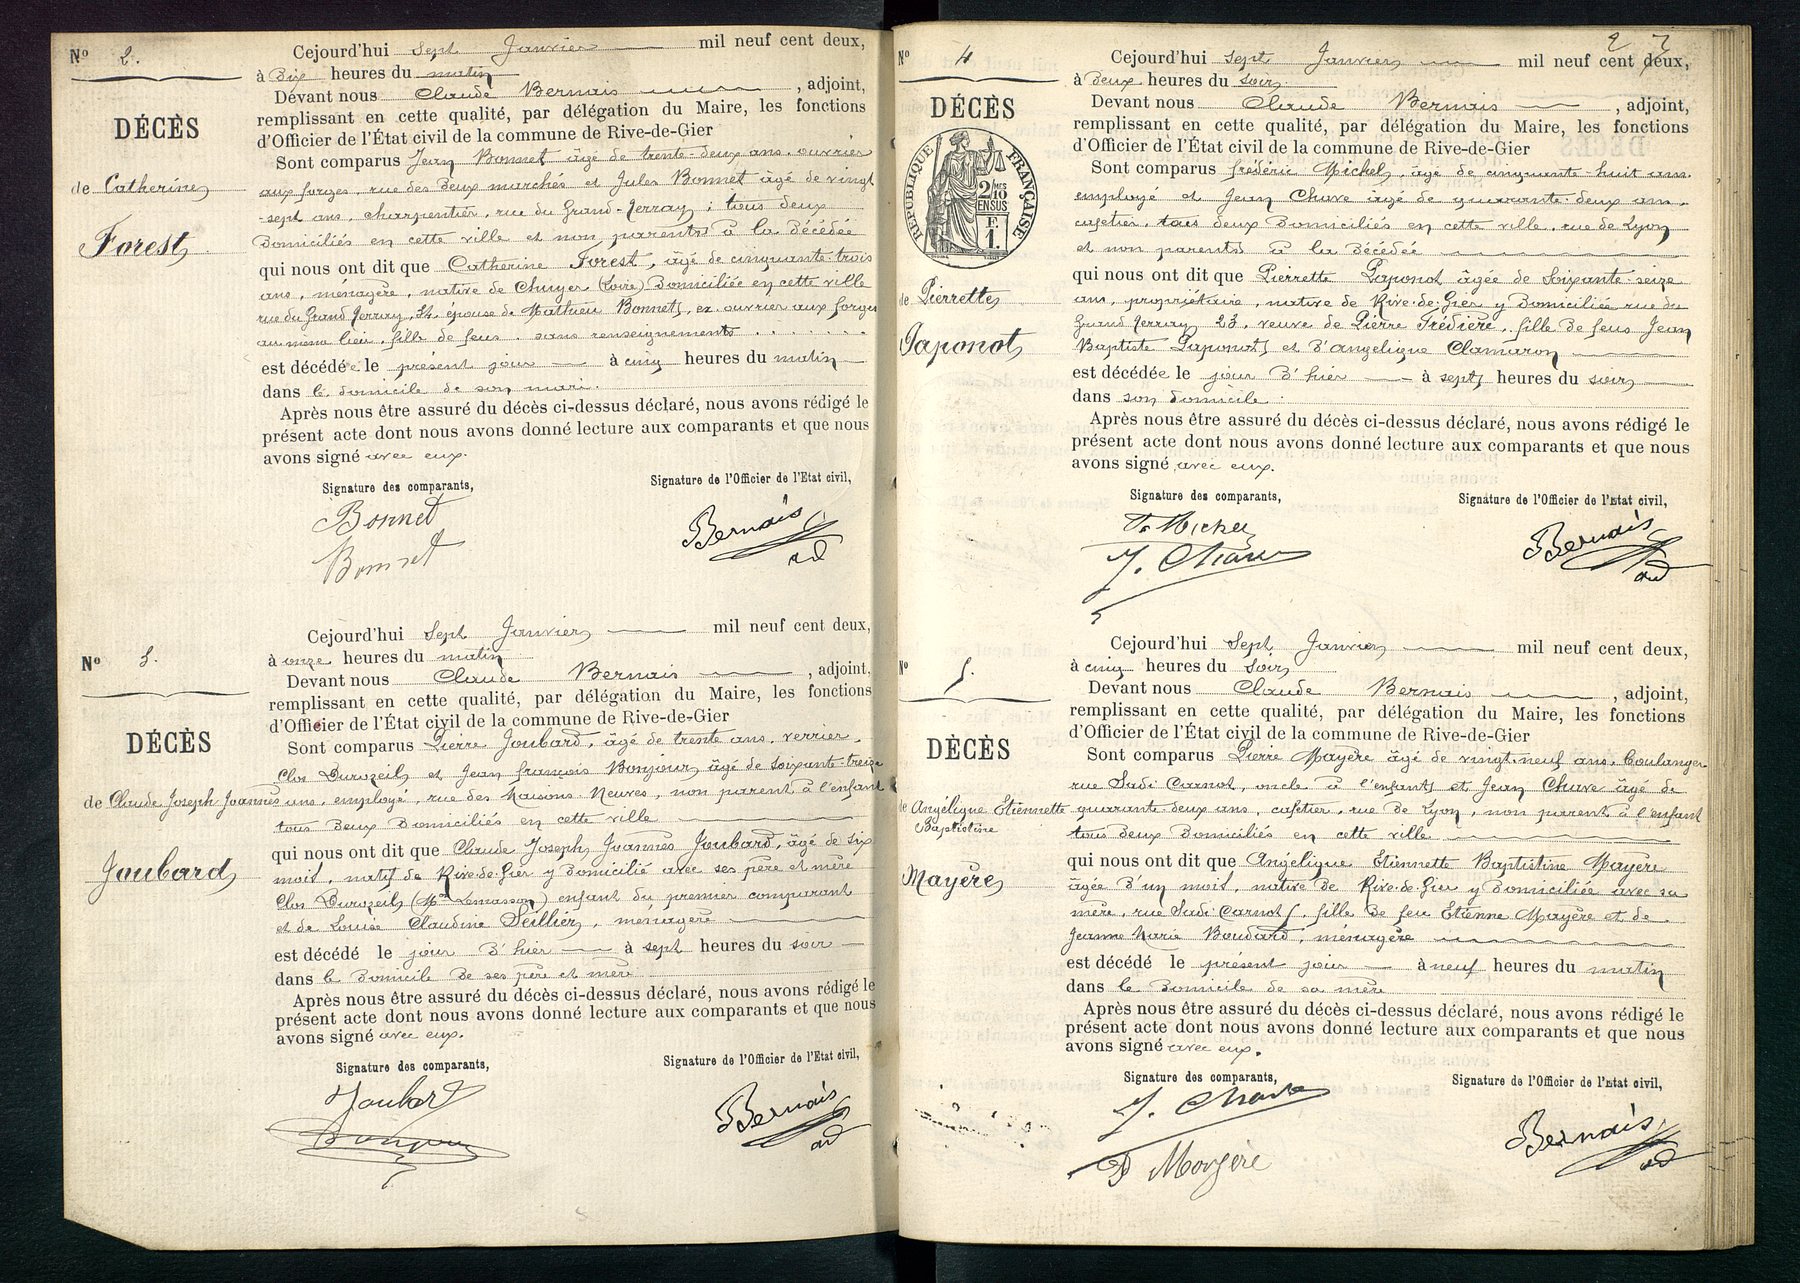 Nº 2.
DÉCÈS
de Catherine
Forest
Cejourd'hui sept Janvier mil neuf cent deux,
à Dix heures du matin
Dévant nous Claude Bernais, adjoint,
remplissant en cette qualité, par délégation du Maire, les fonctions
d'Officier de l'État civil de la commune de Rive-de-Gier
Sont comparus Jean Bonnet âgé de trente deux ans, ouvrier
aux forges, rue des deux marchés et Jules Bonnet âgé de vingt
-sept ans, charpentier, rue du Grand-Gerray ; tous deux
Domiciliés en cette ville et non parents à la décédée
qui nous ont dit que Catherine Forest, âgé de cinquante-trois
ans, ménagère, native de Chuyer (Loire) Domiciliée en cette ville
rue du Grand Gerray, 34, épouse de Mathieu Bonnet, ex ouvrier aux forges
au même lieu, fille de feus, sans renseignements
est décédée le présent jour à cinq heures du matin
dans le domicile de son mari.
Après nous être assuré du décès ci-dessus déclaré, nous avons rédigé le
présent acte dont nous avons donné lecture aux comparants et que nous
avons signé avec eux.
Signature des comparants,
Signature de l'Officier de l'Etat civil,
Bonnet
Bonnet
Bernais
ad
Nº 3.
DÉCÈS
de Claude Joseph Joannès
Joubard
Cejourd'hui Sept Janvier mil neuf cent deux,
à onze heures du matin
Devant nous Claude Bernais, adjoint,
remplissant en cette qualité, par délégation du Maire, les fonctions
d'Officier de l'État civil de la commune de Rive-de-Gier
Sont comparus Pierre Joubard, âgé de trente ans, verrier,
Clos Durozeil et Jean françois Bonjour âgé de soixante-treize
ans, employé, rue des Maisons Neuves, non parent à l'enfant
tous deux Domiciliés en cette ville
qui nous ont dit que Claude Joseph Joannès Joubard, âgé de six
mois, natif de Rive-de-Gier y domicilié avec ses père et mère
Clos Durozeil (Mon Lemasson) enfant du premier comparant
et de Louise Claudine Seillier, ménagère
est décédé le jour d'hier à sept heures du soir
dans le domicile de ses père et mère
Après nous être assuré du décès ci-dessus déclaré, nous avons rédigé le
présent acte dont nous avons donné lecture aux comparants et que nous
avons signé avec eux.
Signature des comparants,
Signature de l'Officier de l'Etat civil,
Joubard
Bonjour
Bernais
ad
2
Nº 4
DÉCÈS
RÉPUBLIQUE FRANÇAISE
2/MES
10
EN SUS
F.
1.
de Pierrette
Paponot
Cejourd'hui sept Janvier mil neuf cent deux,
à deux heures du soir
Devant nous Claude Bernais, adjoint,
remplissant en cette qualité, par délégation du Maire, les fonctions
d'Officier de l'État civil de la commune de Rive-de-Gier
Sont comparus frédéric Michel, âgé de cinquante-huit ans,
employé et Jean Chave âgé de quarante deux ans,
cafetier, tous deux Domiciliés en cette ville, rue de Lyon
et non parents à la Décédée
qui nous ont dit que Pierrette Paponot âgée de soixante-seize
ans, propriétaire, native de Rive-de-Gier y Domiciliée rue du
Grand Gerray 23, veuve de Pierre Frédière, fille de feus Jean
Baptiste Paponot et d'angélique Clamaron
est décédée le jour d'hier à sept heures du soir
dans son domicile.
Après nous être assuré du décès ci-dessus déclaré, nous avons rédigé le
présent acte dont nous avons donné lecture aux comparants et que nous
avons signé avec eux.
Signature des comparants,
Signature de l'Officier de l'Etat civil,
F. Michel
J. Chave
Bernais
ad
Nº 5.
DÉCÈS
de Angélique Etiennette
Baptistine
Mayère
Cejourd'hui Sept Janvier mil neuf cent deux,
à cinq heures du soir
Devant nous Claude Bernais, adjoint,
remplissant en cette qualité, par délégation du Maire, les fonctions
d'Officier de l'État civil de la commune de Rive-de-Gier
Sont comparus Pierre Mayère âgé de vingt-neuf ans, boulanger
rue Sadi Carnot, oncle à l'enfant et Jean Chave âgé de
quarante deux ans, cafetier, rue de Lyon, non parent à l'enfant
tous deux Domiciliés en cette ville
qui nous ont dit que Angélique Etiennette Baptistine Mayère
âgée d'un mois, native de Rive-de-Gier y Domiciliée avec sa
mère, rue Sadi Carnot, fille de feu Etienne Mayère et de
Jeanne Marie Boudard, ménagère
est décédé le présent jour à neuf heures du matin
dans le domicile de sa mère
Après nous être assuré du décès ci-dessus déclaré, nous avons rédigé le
présent acte dont nous avons donné lecture aux comparants et que nous
avons signé avec eux.
Signature des comparants,
Signature de l'Officier de l'Etat civil,
J. Chave
P Mayère
Bernais
ad